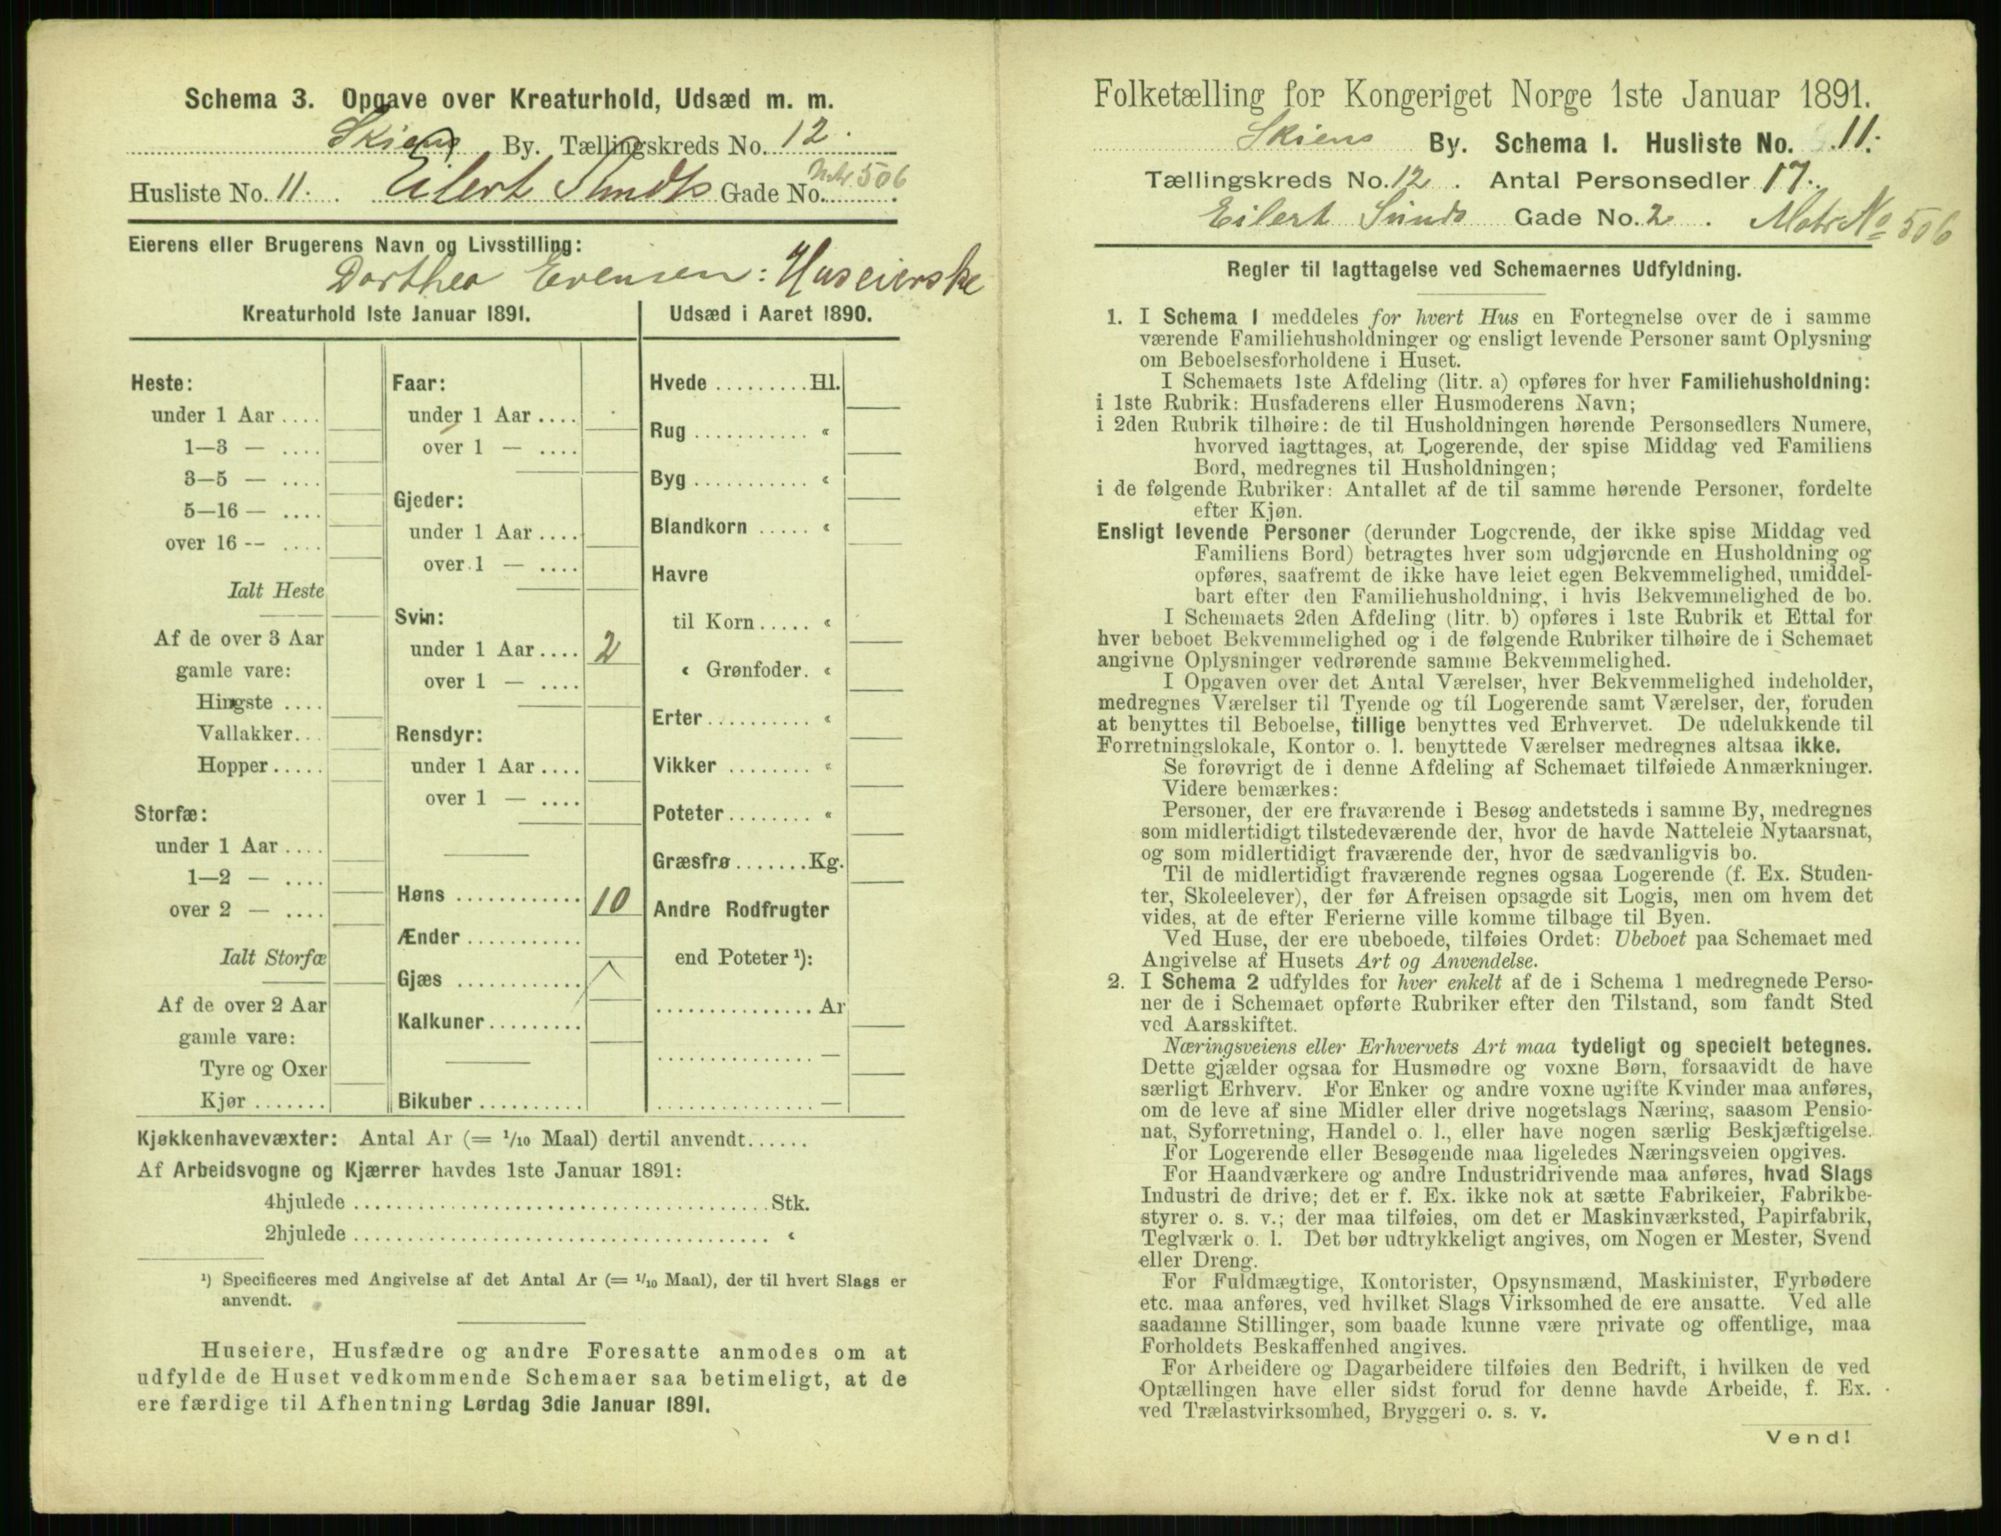 Schema 3. Opgave over Kreaturhold, Udsæd m. m.
Skiens By. Tællingskreds No. 12.
Husliste No. 11. Eilert Sundts Gade No. Mtr. 506.
Eierens eller Brugerens Navn og Livsstilling:
Dorthea Evensen: Huseierske
Kreaturhold 1ste Januar 1891.
Heste:
under 1 Aar ....
1—3 — ....
3—5 — ....
5—16 — ....
over 16 -- ....
Ialt Heste
Af de over 3 Aar
gamle vare:
Hingste ....
Vallakker...
Hopper.....
Storfæ:
under 1 Aar ....
1—2 — ....
over 2 — ....
Ialt Storfæ
Af de over 2 Aar
gamle vare:
Tyre og Oxer
Kjør .......
Faar:
under 1 Aar ....
over 1 — ....
Gjeder:
under 1 Aar ....
over 1 — ....
Svin:
under 1 Aar .... 2
over 1 — ....
Rensdyr:
under 1 Aar ....
over 1 — ....
Høns ............ 10
Ænder ...........
Gjæs ............
Kalkuner.........
Bikuber ..........
Udsæd i Aaret 1890.
Hvede .........Hl.
Rug ........... «
Byg ........... «
Blandkorn ..... «
Havre
til Korn ..... «
« Grønfoder. «
Erter.......... «
Vikker ........ «
Poteter........ «
Græsfrø .......Kg.
Andre Rodfrugter
end Poteter ¹):
............... Ar
............... —
............... —
Kjøkkenhavevæxter: Antal Ar (= 1/10 Maal) dertil anvendt......
Af Arbeidsvogne og Kjærrer havdes 1ste Januar 1891:
4hjulede ....................................... Stk.
2hjulede ....................................... «
¹) Specificeres med Angivelse af det Antal Ar (= 1/10 Maal), der til hvert Slags er
anvendt.
Huseiere, Husfædre og andre Foresatte anmodes om at
udfylde de Huset vedkommende Schemaer saa betimeligt, at de
ere færdige til Afhentning Lørdag 3die Januar 1891.
Folketælling for Kongeriget Norge 1ste Januar 1891.
Skiens By. Schema 1. Husliste No. 11.
Tællingskreds No. 12. Antal Personsedler 17.
Eilert Sunds Gade No. 2. Matr No 506
Regler til Iagttagelse ved Schemaernes Udfyldning.
1. I Schema 1 meddeles for hvert Hus en Fortegnelse over de i samme
værende Familiehusholdninger og ensligt levende Personer samt Oplysning
om Beboelsesforholdene i Huset.
I Schemaets 1ste Afdeling (litr. a) opføres for hver Familiehusholdning:
i 1ste Rubrik: Husfaderens eller Husmoderens Navn;
i 2den Rubrik tilhøire: de til Husholdningen hørende Personsedlers Numere,
hvorved iagttages, at Logerende, der spise Middag ved Familiens
Bord, medregnes til Husholdningen;
i de følgende Rubriker: Antallet af de til samme hørende Personer, fordelte
efter Kjøn.
Ensligt levende Personer (derunder Logerende, der ikke spise Middag ved
Familiens Bord) betragtes hver som udgjørende en Husholdning og
opføres, saafremt de ikke have leiet egen Bekvemmelighed, umiddel-
bart efter den Familiehusholdning, i hvis Bekvemmelighed de bo.
I Schemaets 2den Afdeling (litr. b) opføres i 1ste Rubrik et Ettal for
hver beboet Bekvemmelighed og i de følgende Rubriker tilhøire de i Schemaet
angivne Oplysninger vedrørende samme Bekvemmelighed.
I Opgaven over det Antal Værelser, hver Bekvemmelighed indeholder,
medregnes Værelser til Tyende og til Logerende samt Værelser, der, foruden
at benyttes til Beboelse, tillige benyttes ved Erhvervet. De udelukkende til
Forretningslokale, Kontor o. l. benyttede Værelser medregnes altsaa ikke.
Se forøvrigt de i denne Afdeling af Schemaet tilføiede Anmærkninger.
Videre bemærkes:
Personer, der ere fraværende i Besøg andetsteds i samme By, medregnes
som midlertidigt tilstedeværende der, hvor de havde Natteleie Nytaarsnat,
og som midlertidigt fraværende der, hvor de sædvanligvis bo.
Til de midlertidigt fraværende regnes ogsaa Logerende (f. Ex. Studen-
ter, Skoleelever), der før Afreisen opsagde sit Logis, men om hvem det
vides, at de efter Ferierne ville komme tilbage til Byen.
Ved Huse, der ere ubeboede, tilføies Ordet: Ubeboet paa Schemaet med
Angivelse af Husets Art og Anvendelse.
2. I Schema 2 udfyldes for hver enkelt af de i Schema 1 medregnede Perso-
ner de i Schemaet opførte Rubriker efter den Tilstand, som fandt Sted
ved Aarsskiftet.
Næringsveiens eller Erhvervets Art maa tydeligt og specielt betegnes.
Dette gjælder ogsaa for Husmødre og voxne Børn, forsaavidt de have
særligt Erhverv. For Enker og andre voxne ugifte Kvinder maa anføres,
om de leve af sine Midler eller drive nogetslags Næring, saasom Pensio-
nat, Syforretning, Handel o. l., eller have nogen særlig Beskjæftigelse.
For Logerende eller Besøgende maa ligeledes Næringsveien opgives.
For Haandværkere og andre Industridrivende maa anføres, hvad Slags
Industri de drive; det er f. Ex. ikke nok at sætte Fabrikeier, Fabrikbe-
styrer o. s. v.; der maa tilføies, om det er Maskinværksted, Papirfabrik,
Teglværk o. l. Det bør udtrykkeligt angives, om Nogen er Mester, Svend
eller Dreng.
For Fuldmægtige, Kontorister, Opsynsmænd, Maskinister, Fyrbødere
etc. maa anføres, ved hvilket Slags Virksomhed de ere ansatte. Ved alle
saadanne Stillinger, som baade kunne være private og offentlige, maa
Forholdets Beskaffenhed angives.
For Arbeidere og Dagarbeidere tilføies den Bedrift, i hvilken de ved
Optællingen have eller sidst forud for denne havde Arbeide, f. Ex.
ved Trælastvirksomhed, Bryggeri o. s. v.
Vend!